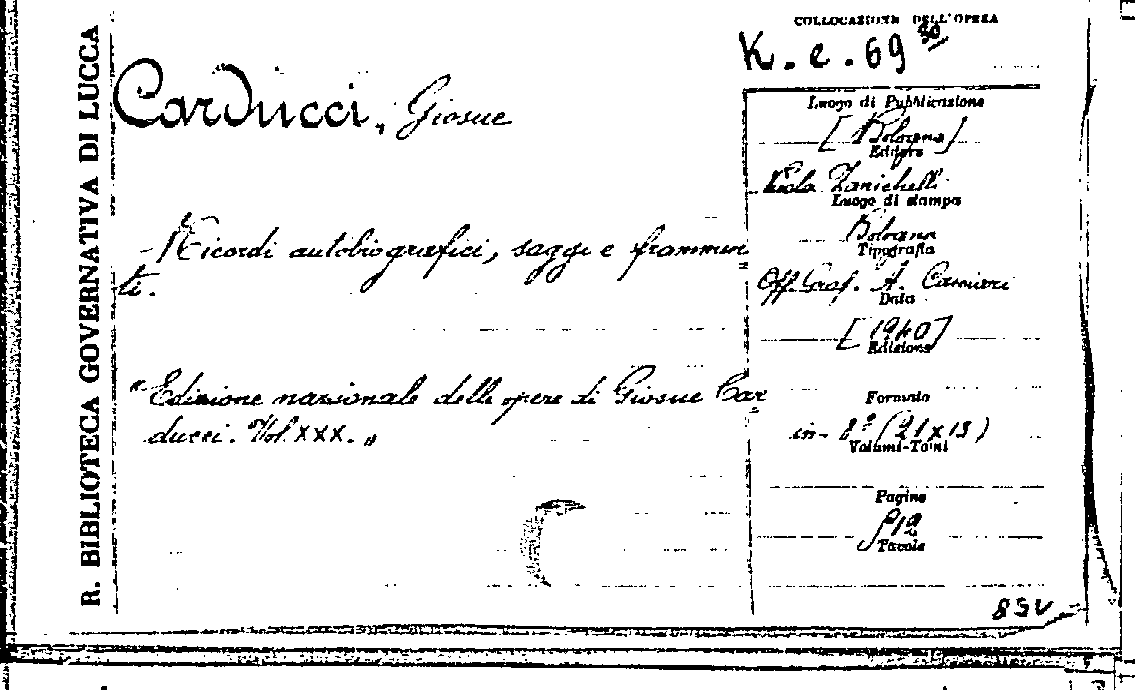 R. BIBLIOTECA GOVERNATIVA DI LUCCA
COLLOCAZIONE DELL'OPERA
K. e. 69 30
Carducci, Giosue
Ricordi autobiografici, saggi e frammen
ti.
"Edizione nazionale delle opere di Giosue Car
ducci. Vol. XXX."
Luogo di Pubblicazione
[Bologna]
Editore
Zanichelli
Luogo di stampa
Bologna
Tipografia
Off. Graf. A. Cacciari
Data
[1940]
Edizione
Formato
in-8º (21x13)
Volumi-Tomi
Pagine
512
Tavole